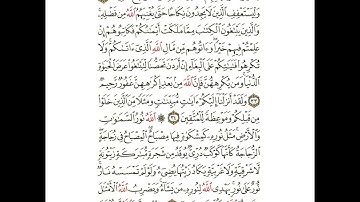 وَلْيَسْتَعْفِفِ ٱلَّذِينَ لَا يَجِدُونَ نِكَاحًا حَتَّىٰ يُغْنِيَهُمُ ٱللَّهُ مِن فَضْلِهِۦ
وَٱلَّذِينَ يَبْتَغُونَ ٱلْكِتَٰبَ مِمَّا مَلَكَتْ أَيْمَٰنُكُمْ فَكَاتِبُوهُمْ إِنْ
عَلِمْتُمْ فِيهِمْ خَيْرًا وَءَاتُوهُم مِّن مَّالِ ٱللَّهِ ٱلَّذِىٓ ءَاتَىٰكُمْ وَلَا
تُكْرِهُوا۟ فَتَيَٰتِكُمْ عَلَى ٱلْبِغَآءِ إِنْ أَرَدْنَ تَحَصُّنًا لِّتَبْتَغُوا۟ عَرَضَ ٱلْحَيَوٰةِ
ٱلدُّنْيَا وَمَن يُكْرِههُّنَّ فَإِنَّ ٱللَّهَ مِنۢ بَعْدِ إِكْرَٰهِهِنَّ غَفُورٌ رَّحِيمٌ
٣٣ وَلَقَدْ أَنزَلْنَآ إِلَيْكُمْ ءَايَٰتٍ مُّبَيِّنَٰتٍ وَمَثَلًا مِّنَ ٱلَّذِينَ خَلَوْا۟
مِن قَبْلِكُمْ وَمَوْعِظَةً لِّلْمُتَّقِينَ ٣٤ ٱللَّهُ نُورُ ٱلسَّمَٰوَٰتِ
وَٱلْأَرْضِ مَثَلُ نُورِهِۦ كَمِشْكَوٰةٍ فِيهَا مِصْبَاحٌ ٱلْمِصْبَاحُ فِى زُجَاجَةٍ
ٱلزُّجَاجَةُ كَأَنَّهَا كَوْكَبٌ دُرِّىٌّ يُوقَدُ مِن شَجَرَةٍ مُّبَٰرَكَةٍ زَيْتُونَةٍ
لَّا شَرْقِيَّةٍ وَلَا غَرْبِيَّةٍ يَكَادُ زَيْتُهَا يُضِىٓءُ وَلَوْ لَمْ تَمْسَسْهُ نَارٌ
نُّورٌ عَلَىٰ نُورٍ يَهْدِى ٱللَّهُ لِنُورِهِۦ مَن يَشَآءُ وَيَضْرِبُ ٱللَّهُ ٱلْأَمْثَٰلَ